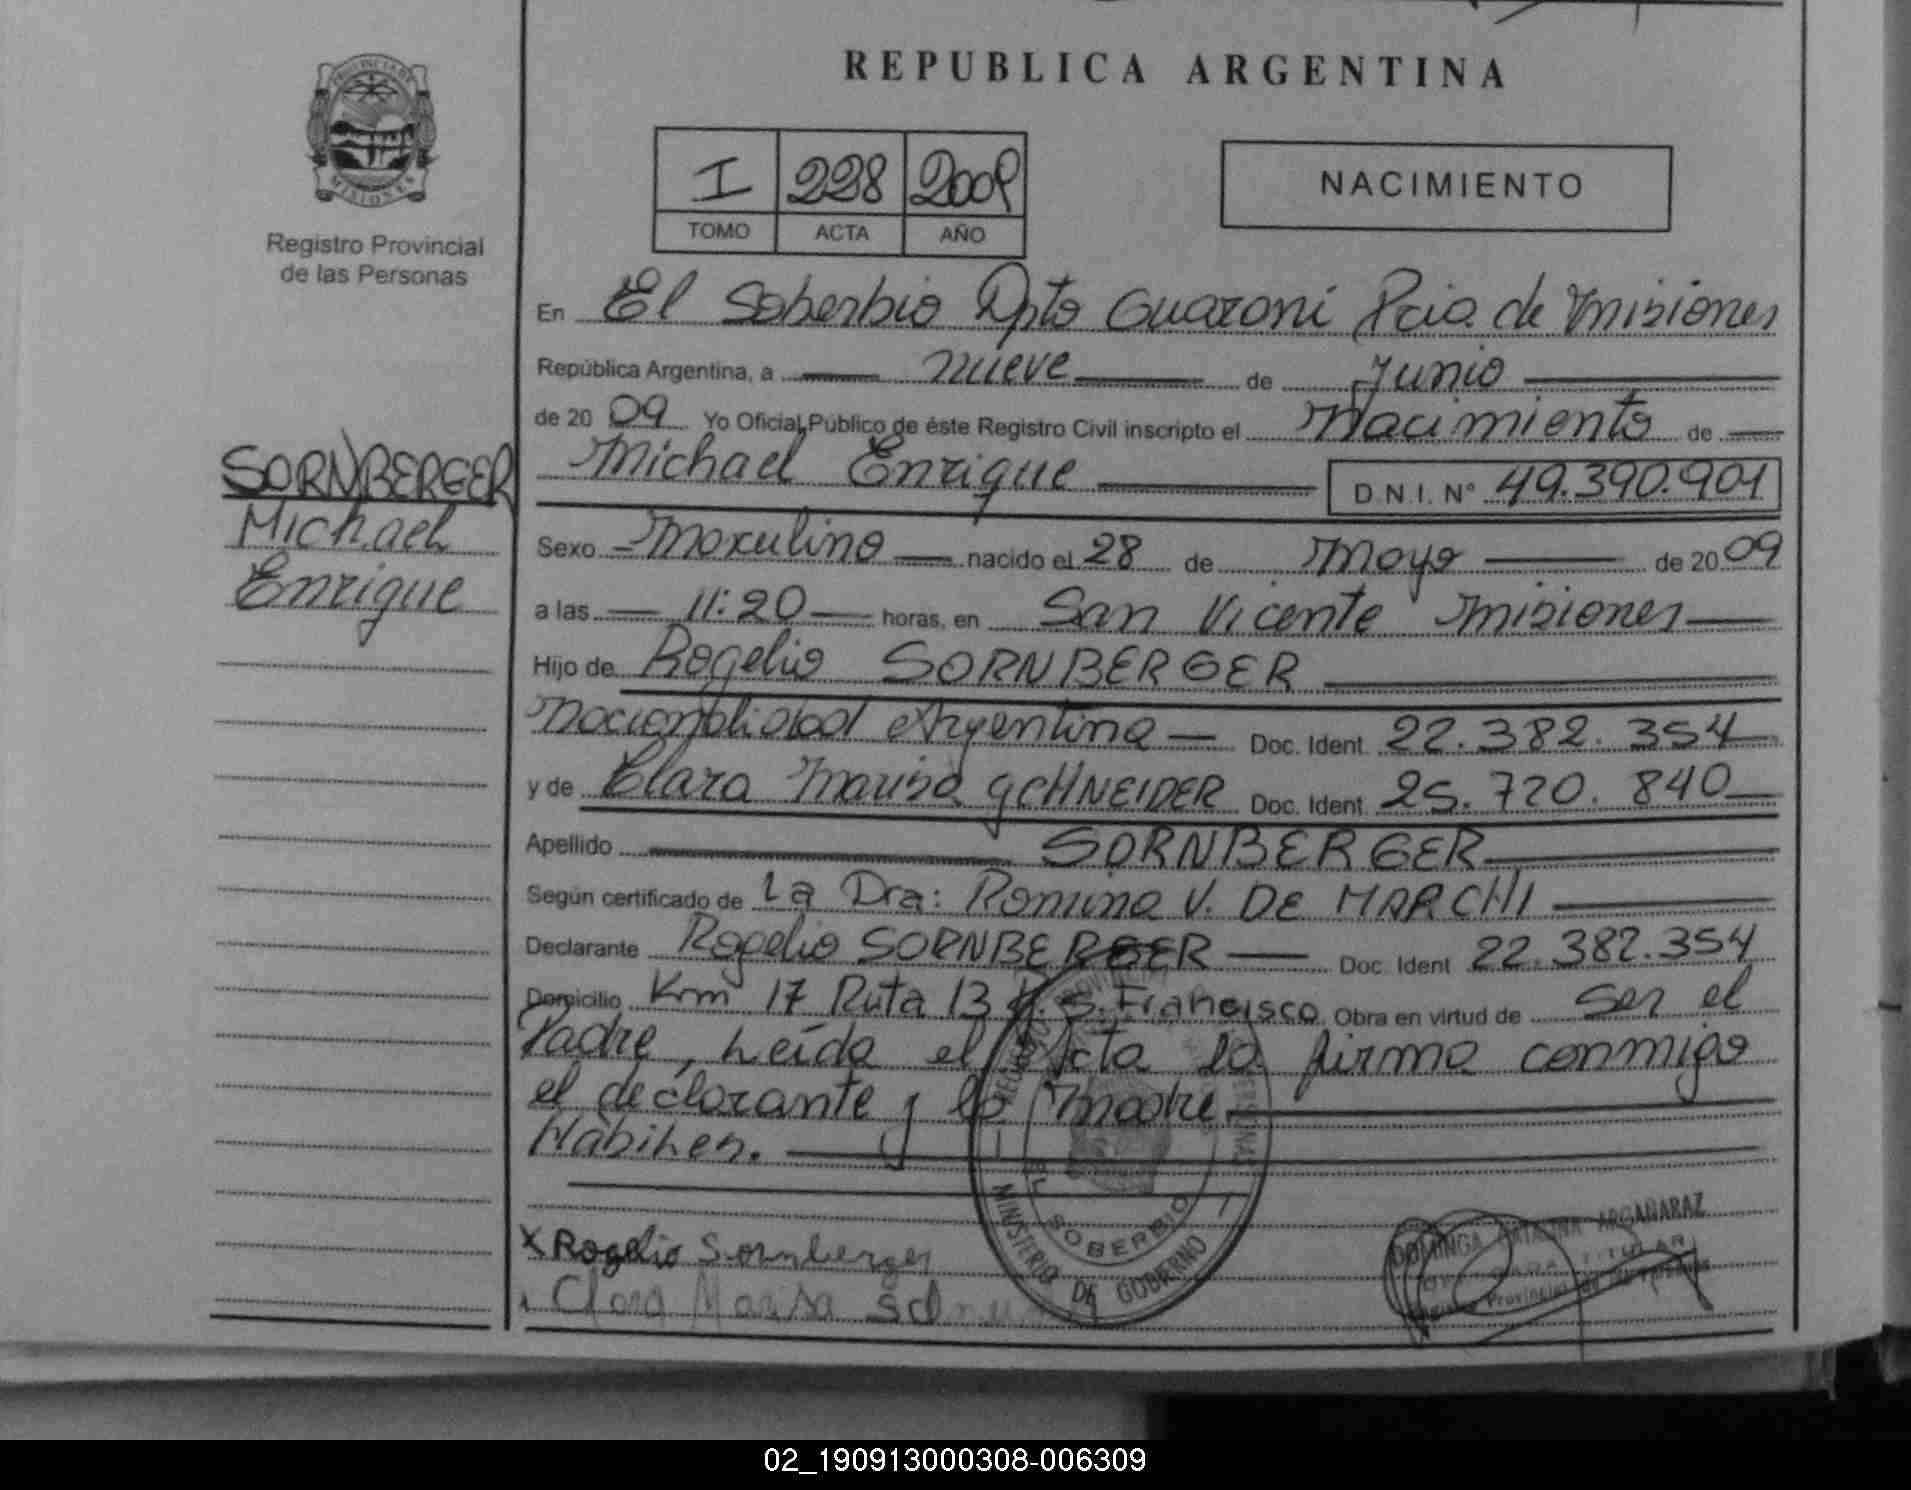 PROVINCIA DE
MISIONES
Registro Provincial
de las Personas
SORNBERGER
Michael
Enrique
REPUBLICA ARGENTINA
I 228 2009
TOMO ACTA AÑO
NACIMIENTO
En El Soberbio Dpto Guaraní Pcia. de Misiones
República Argentina, a nueve de Junio
de 2009 Yo Oficial Público de éste Registro Civil inscripto el Nacimiento de
Michael Enrique D.N.I. N° 49.390.901
Sexo Masculino nacido el 28 de Mayo de 2009
a las 11:20 horas, en San Vicente Misiones
Hijo de Rogelio SORNBERGER
Nacionalidad Argentina Doc. Ident. 22.382.354
y de Clara Marisa SCHNEIDER Doc. Ident. 25.720.840
Apellido SORNBERGER
Según certificado de La Dra: Romina V. DE MARCHI
Declarante Rogelio SORNBERGER Doc. Ident 22.382.354
Domicilio Km 17 Ruta 13 S. Francisco Obra en virtud de Ser el
Padre, Leída el Acta la firma conmigo
el declarante y la Madre
Hábiles.
EL SOBERBIO
MINISTERIO DE GOBIERNO
X Rogelio Sornberger
Clara Marisa
DOMINGA CATALINA ARGAÑARAZ
TITULAR
02_190913000308-006309